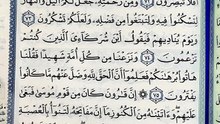 أَفَلَا تُبْصِرُونَ ٧٢ وَمِن رَّحْمَتِهِۦ جَعَلَ لَكُمُ ٱلَّيْلَ وَٱلنَّهَارَ
لِتَسْكُنُوا۟ فِيهِ وَلِتَبْتَغُوا۟ مِن فَضْلِهِۦ وَلَعَلَّكُمْ تَشْكُرُونَ ٧٣
وَيَوْمَ يُنَادِيهِمْ فَيَقُولُ أَيْنَ شُرَكَآءِىَ ٱلَّذِينَ كُنتُمْ
تَزْعُمُونَ ٧٤ وَنَزَعْنَا مِن كُلِّ أُمَّةٍ شَهِيدًا فَقُلْنَا
هَاتُوا۟ بُرْهَٰنَكُمْ فَعَلِمُوٓا۟ أَنَّ ٱلْحَقَّ لِلَّهِ وَضَلَّ عَنْهُم مَّا كَانُوا۟
يَفْتَرُونَ ٧٥ إِنَّ قَٰرُونَ كَانَ مِن قَوْمِ مُوسَىٰ فَبَغَىٰ
عَلَيْهِمْ وَءَاتَيْنَٰهُ مِنَ ٱلْكُنُوزِ مَآ إِنَّ مَفَاتِحَهُۥ لَتَنُوٓأُ بِٱلْعُصْبَةِ